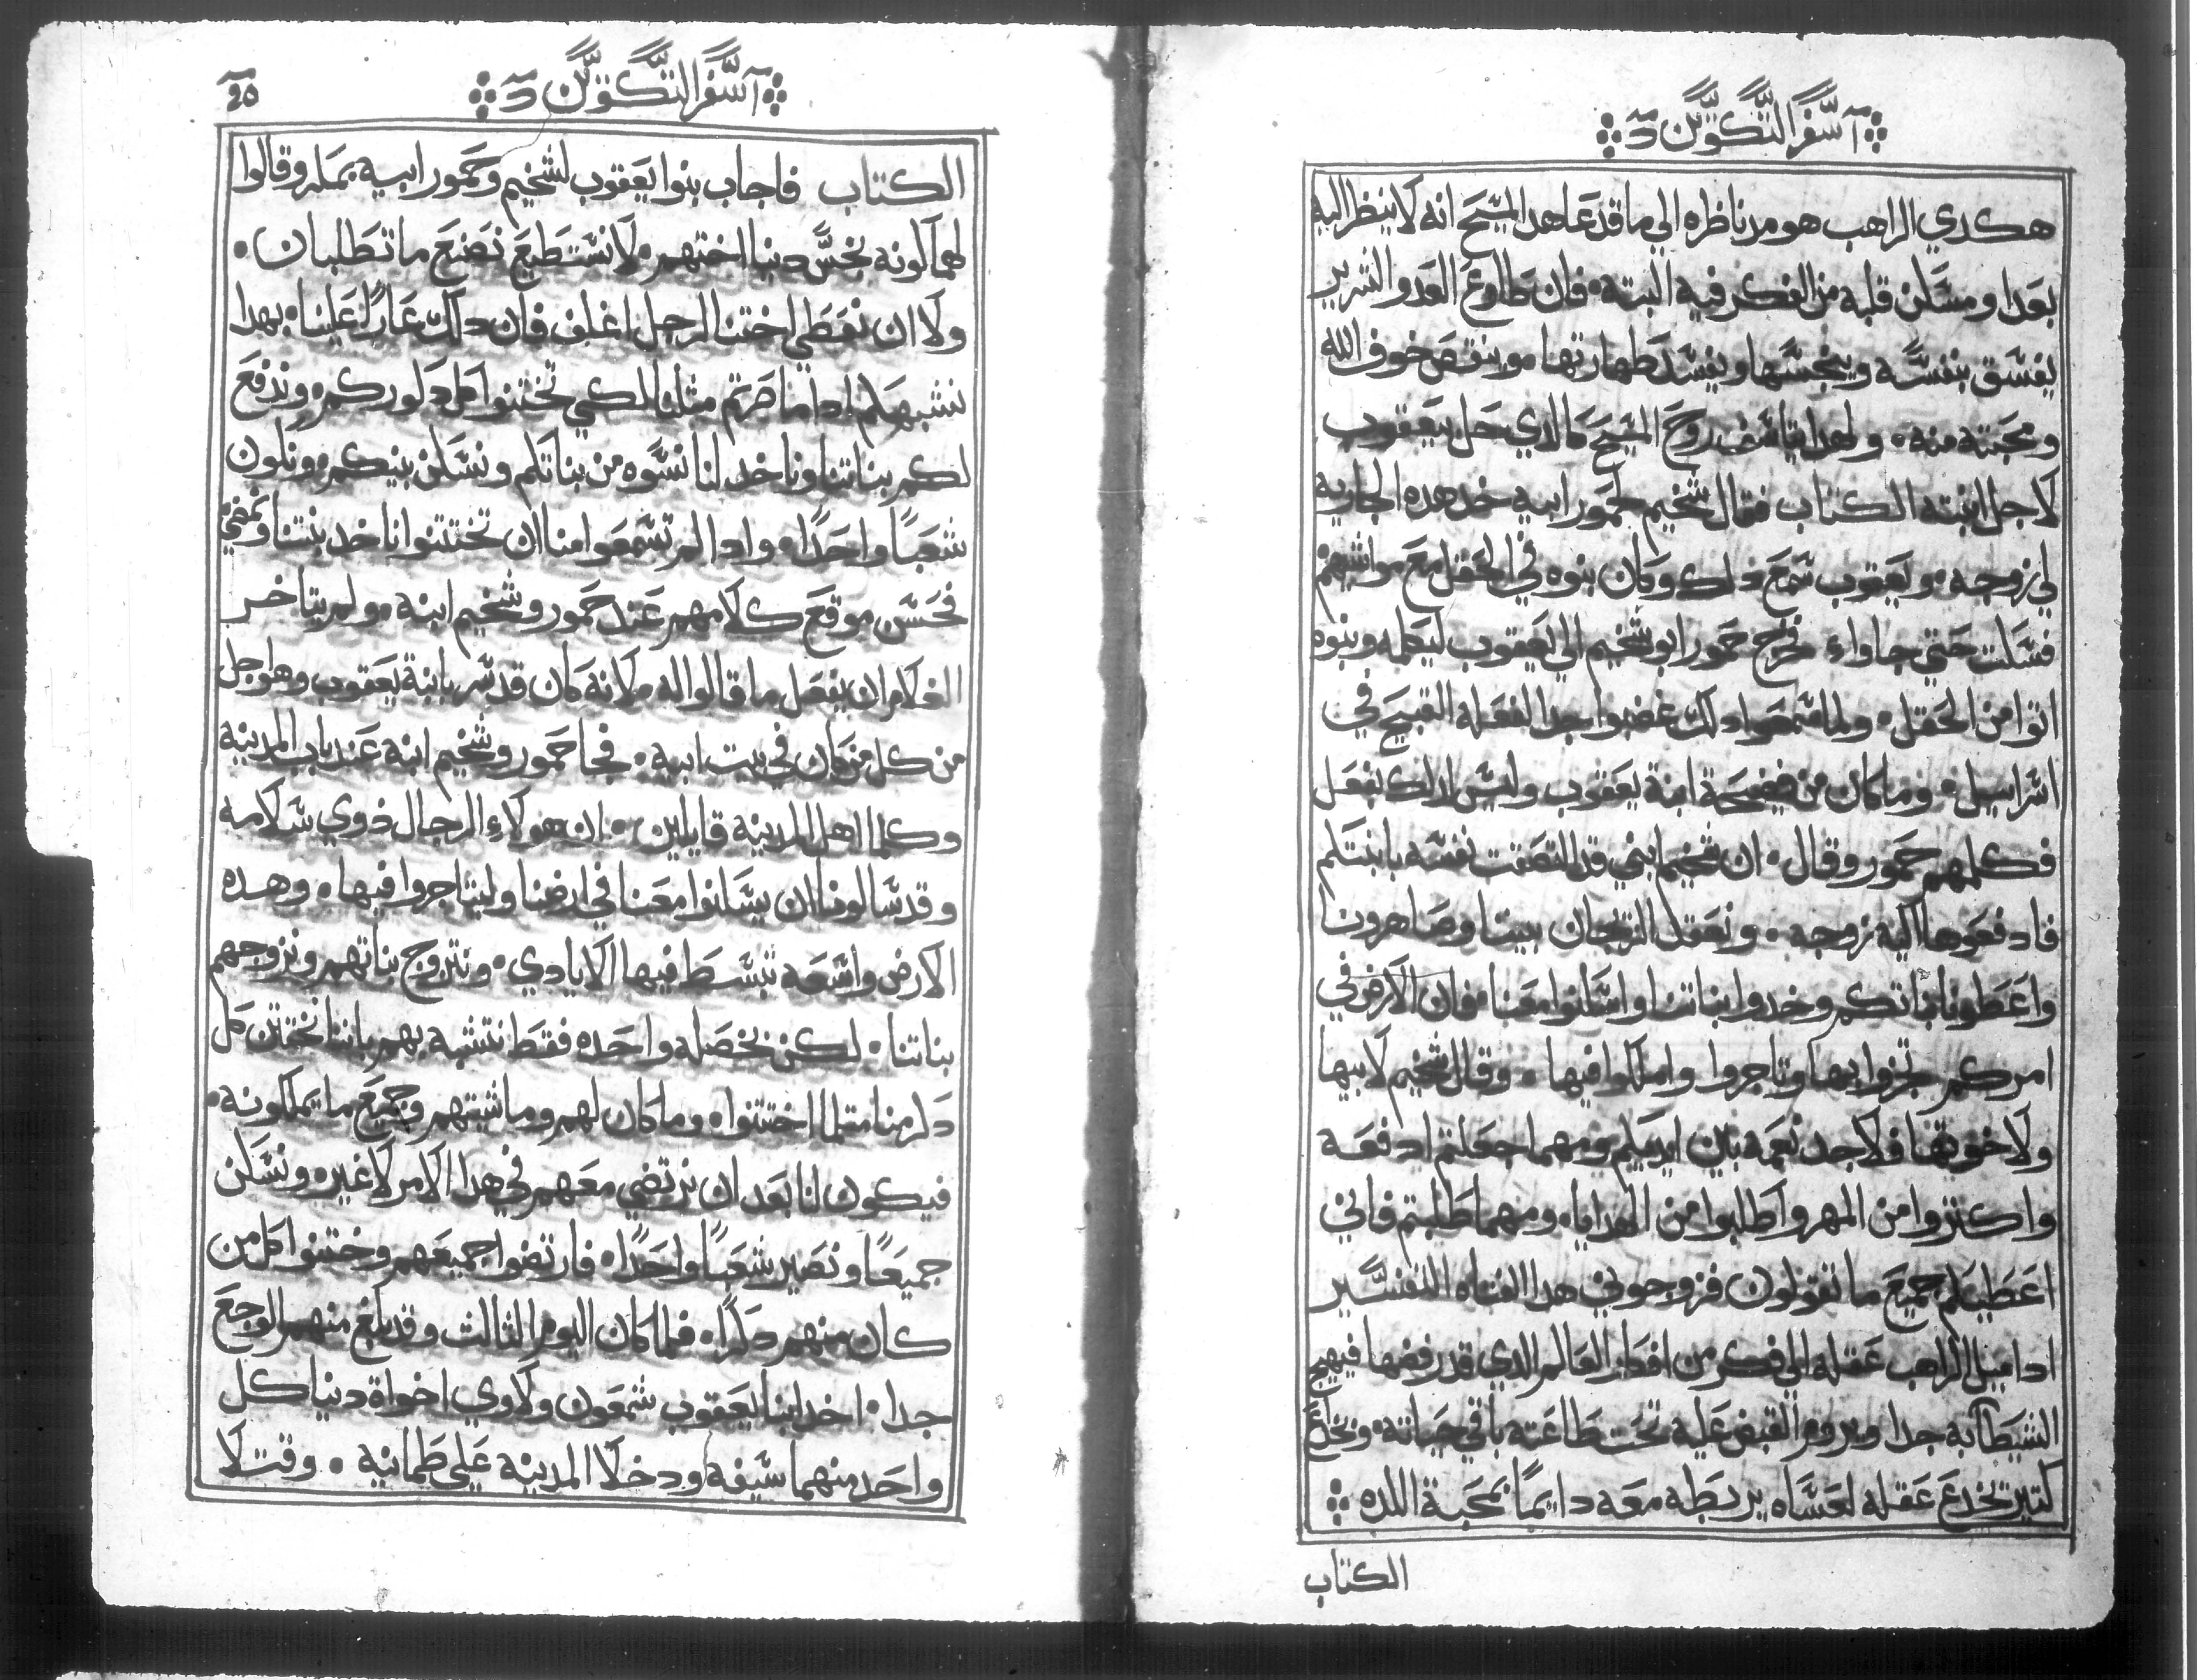 اسفر التكوين
هكدي الراهب هو مد ناظره الي ما قد عاهد المسيح انه لا ينظر اليه
بعدا ومسكن قلبه من الفكر فيه البته فان طاوع العدو الشرير
يفسق بنفسه وينجسها ويفسد طهارتها وينقص خوف الله
ومحبته منه ولهدا يتاسف روح المسيح كالدي حل بيعقوب
لاجل ابنته الكتاب فقال شخيم لحمور ابيه خد هده الجاريه
لي زوجه ويعقوب سمع دلك وكان بنوه في الحقل مع مواشيهم
فسكت حتي جاواء فخرج حمور ابو شخيم الي يعقوب ليكلمه وبنوه
اتوا من الحقل ولما سمعوا دلك غضبوا جدا لفعله القبيح في
اسراييل وما كان من فضيحة ابنة يعقوب وليس لدلك يفعل
فكلمهم حمور وقال ان شخيم ابني قد التصقت نفسه بابنتكم
فادفعوها اليه زوجه ونعقد التزيجان بيننا وصاهرونا
واعطونا بناتكم وخدوا بناتنا واسكنوا معنا فان الارض في
امركم تجزوا بها وتاجروا واملكوا فيها وقال شخيم لابيها
ولاخوتها فلاجد نعمه بين ايديكم ومهما جعلتم ادفعه
واكتروا من المهر واطلبوا من الهدايا ومهما طلبتم فاني
اعطيكم جميع ما تقولون فزوجوني هدا الفتاه التفسير
ادا ميل الراهب عقله الي فكر من افكار العالم الدي قد رفضها فيهيج
الشيطان به جدا ويروم القبض عليه تحت طاعته باقي حياته وتخدع
كتير تخدع عقله لعساه يربطه معه دايمًا بمحبة اللده
الكتاب
اسفر التكوين
20
الكتاب فاجاب بنوا يعقوب لشخيم وحمور ابيه بمكر وقالوا
لهما لونه نجس دينا اختهم لا نستطيع نصنع ما تطلبان
ولا ان نعطي اختنا لرجل اغلف فان دلك عارًا علينا بهدا
نشبهكم ادا ما صرتم مثلنا لكي تختنوا كل دكوركم وندفع
لكم بناتنا وناخد لنا نسوه من بناتكم ونسكن بينكم ونكون
شعبًا واحدًا وادا لم تسمعوا منا ان تختتنوا ناخد بنتنا ونمضي
فحسن موقع كلامهم عند حمور وشخيم ابنه ولم يتاخر
الغلام ان يفعل ما قالوا له لانه كان قد سر بابنة يعقوب وهو اجل
من كل من كان في بيت ابيه فجا حمور وشخيم ابنه عند باب المدينه
وكلما اهل المدينه قايلين ان هولاء الرجال دوي سلامه
وقد سالونا ان يسكنوا معنا في ارضنا وليتاجروا فيها وهده
الارض واسعه تبسط فيها الايادي ونتزوج بناتهم ونزوجهم
بناتنا لكن بخصله واحده فقط نتشبه بهم باننا نختتن كل
دكر منا متلما اختتنوا وما كان لهم وماشيتهم وجميع ما يملكونه
فيكون لنا بعد ان نرتضي معهم في هدا الامر لا غيره ونسكن
جميعًا ونصير شعبًا واحدًا فارتضوا جميعهم وختنوا كل من
كان منهم دكرًا فلما كان اليوم التالت وقد بلغ منهم الوجع
جدا اخد ابنا يعقوب شمعون ولاوي اخواة دينا كل
واحد منهما سيفه ودخلا المدينه علي طمانيه وقتلا